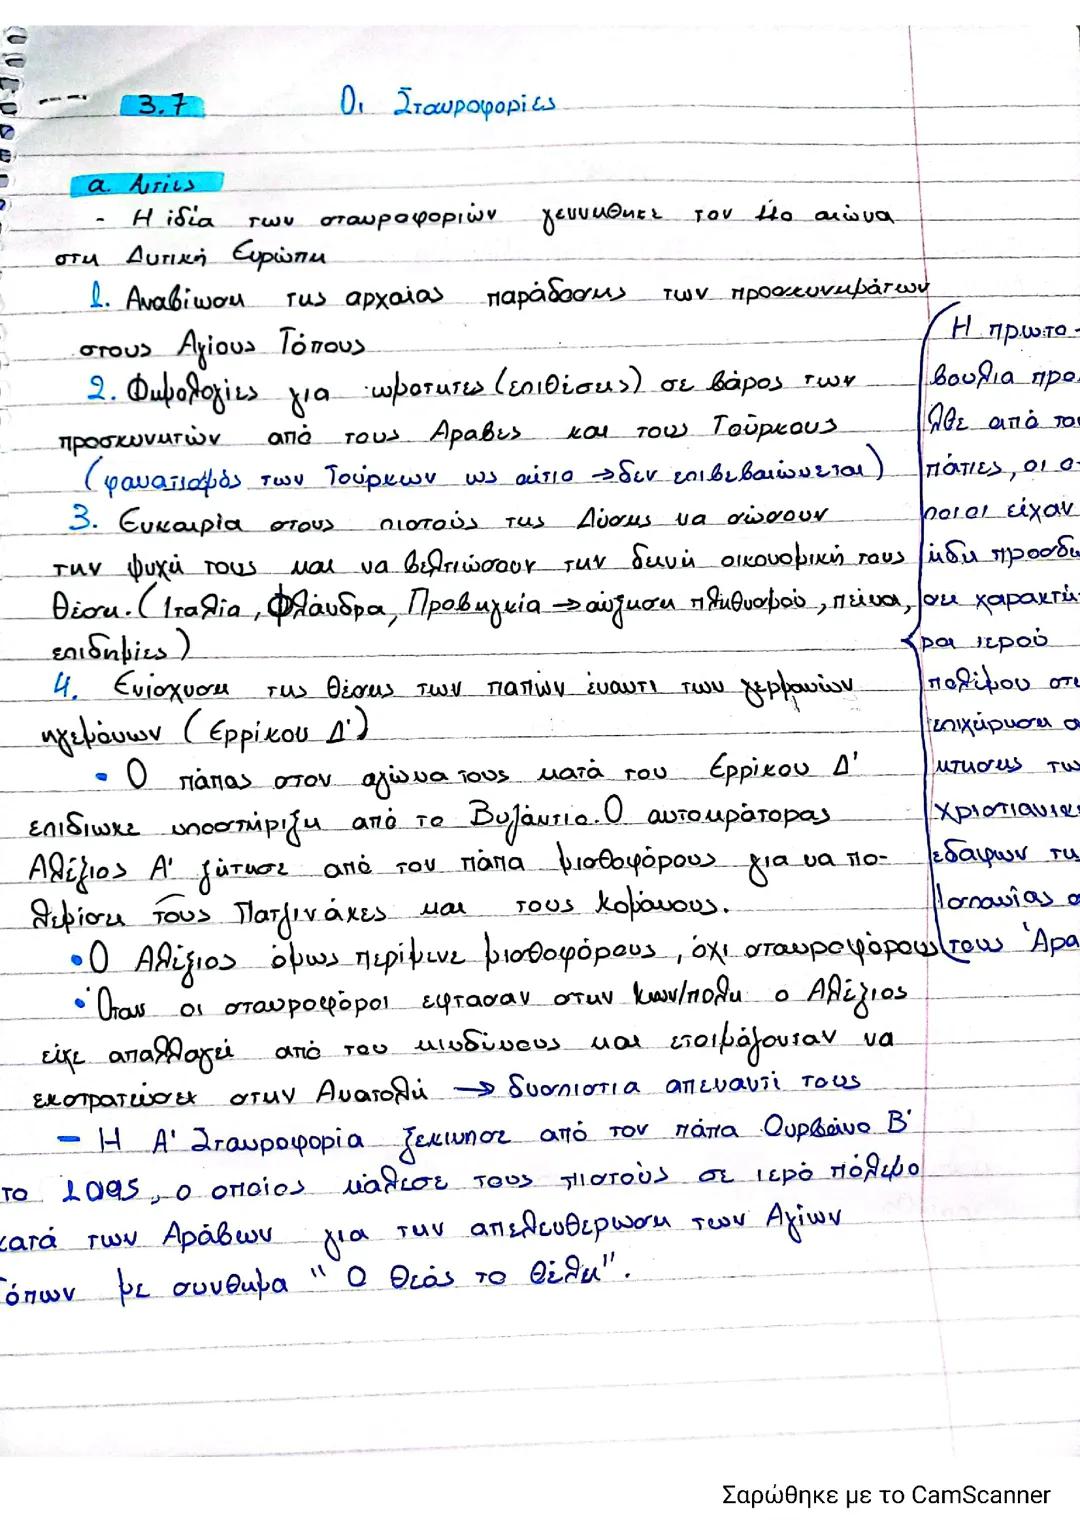 3.7 Οι Σταυροφορίες
α. Αιτίες
- Η ιδέα των σταυροφοριών γεννήθηκε τον 11ο αιώνα
στη Δυτική Ευρώπη
1. Αναβίωση της αρχαίας παράδοσης των προσκυνημάτων
στους Αγίους Τόπους
2. Φημολογίες για ωμότητες (επιθέσεις) σε βάρος των
προσκυνητών από τους Άραβες και τους Τούρκους
(φανατισμός των Τούρκων ως αίτιο → δεν επιβεβαιώνεται)
3. Ευκαιρία στους πιστούς της Δύσης να σώσουν
την ψυχή τους και να βελτιώσουν την δεινή οικονομική τους
θέση. (Ιταλία, Φλάνδρα, Προβηγκία → αύξηση πληθυσμού, πείνα,
επιδημίες)
4. Ενίσχυση της θέσης των παπών έναντι των γερμανών
ηγεμόνων (Ερρίκου Δ')
• Ο πάπας στον αγώνα τους κατά του Ερρίκου Δ'
επιδίωκε υποστήριξη από το Βυζάντιο. Ο αυτοκράτορας
Αλέξιος Α' ζήτησε από τον πάπα μισθοφόρους για να πο-
λεμίσει τους Πατζινάκες και τους Κομάνους.
• Ο Αλέξιος όμως περίμενε μισθοφόρους, όχι σταυροφόρους
• Όταν οι σταυροφόροι έφτασαν στην Κων/πολη ο Αλέξιος
είχε απαλλαγεί από του κινδύνους και ετοιμάζονταν να
εκστρατεύσει στην Ανατολή → δυσπιστία απέναντί τους
- Η Α' Σταυροφορία ξεκίνησε από τον πάπα Ουρβάνο Β'
το 1095, ο οποίος κάλεσε τους πιστούς σε ιερό πόλεμο
κατά των Αράβων για την απελευθέρωση των Αγίων
Τόπων με σύνθημα "Ο Θεός το θέλει".
Η πρωτο-
βουλία προ
ήλθε από του
πάπες, οι ο-
ποίοι είχαν
ήδη προσδώ
σει χαρακτή-
ρα ιερού
πολέμου στ
επιχείρηση α
κτησης τω
χριστιανικ
εδαφών τη
Ισπανίας α
τους Άρα
Σαρώθηκε με το CamScanner